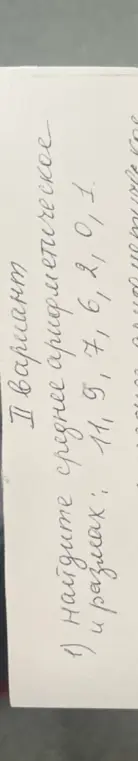 II вариант
1) найдите среднее арифметическое
и размах: 11, 9, 7, 6, 2, 0, 1.